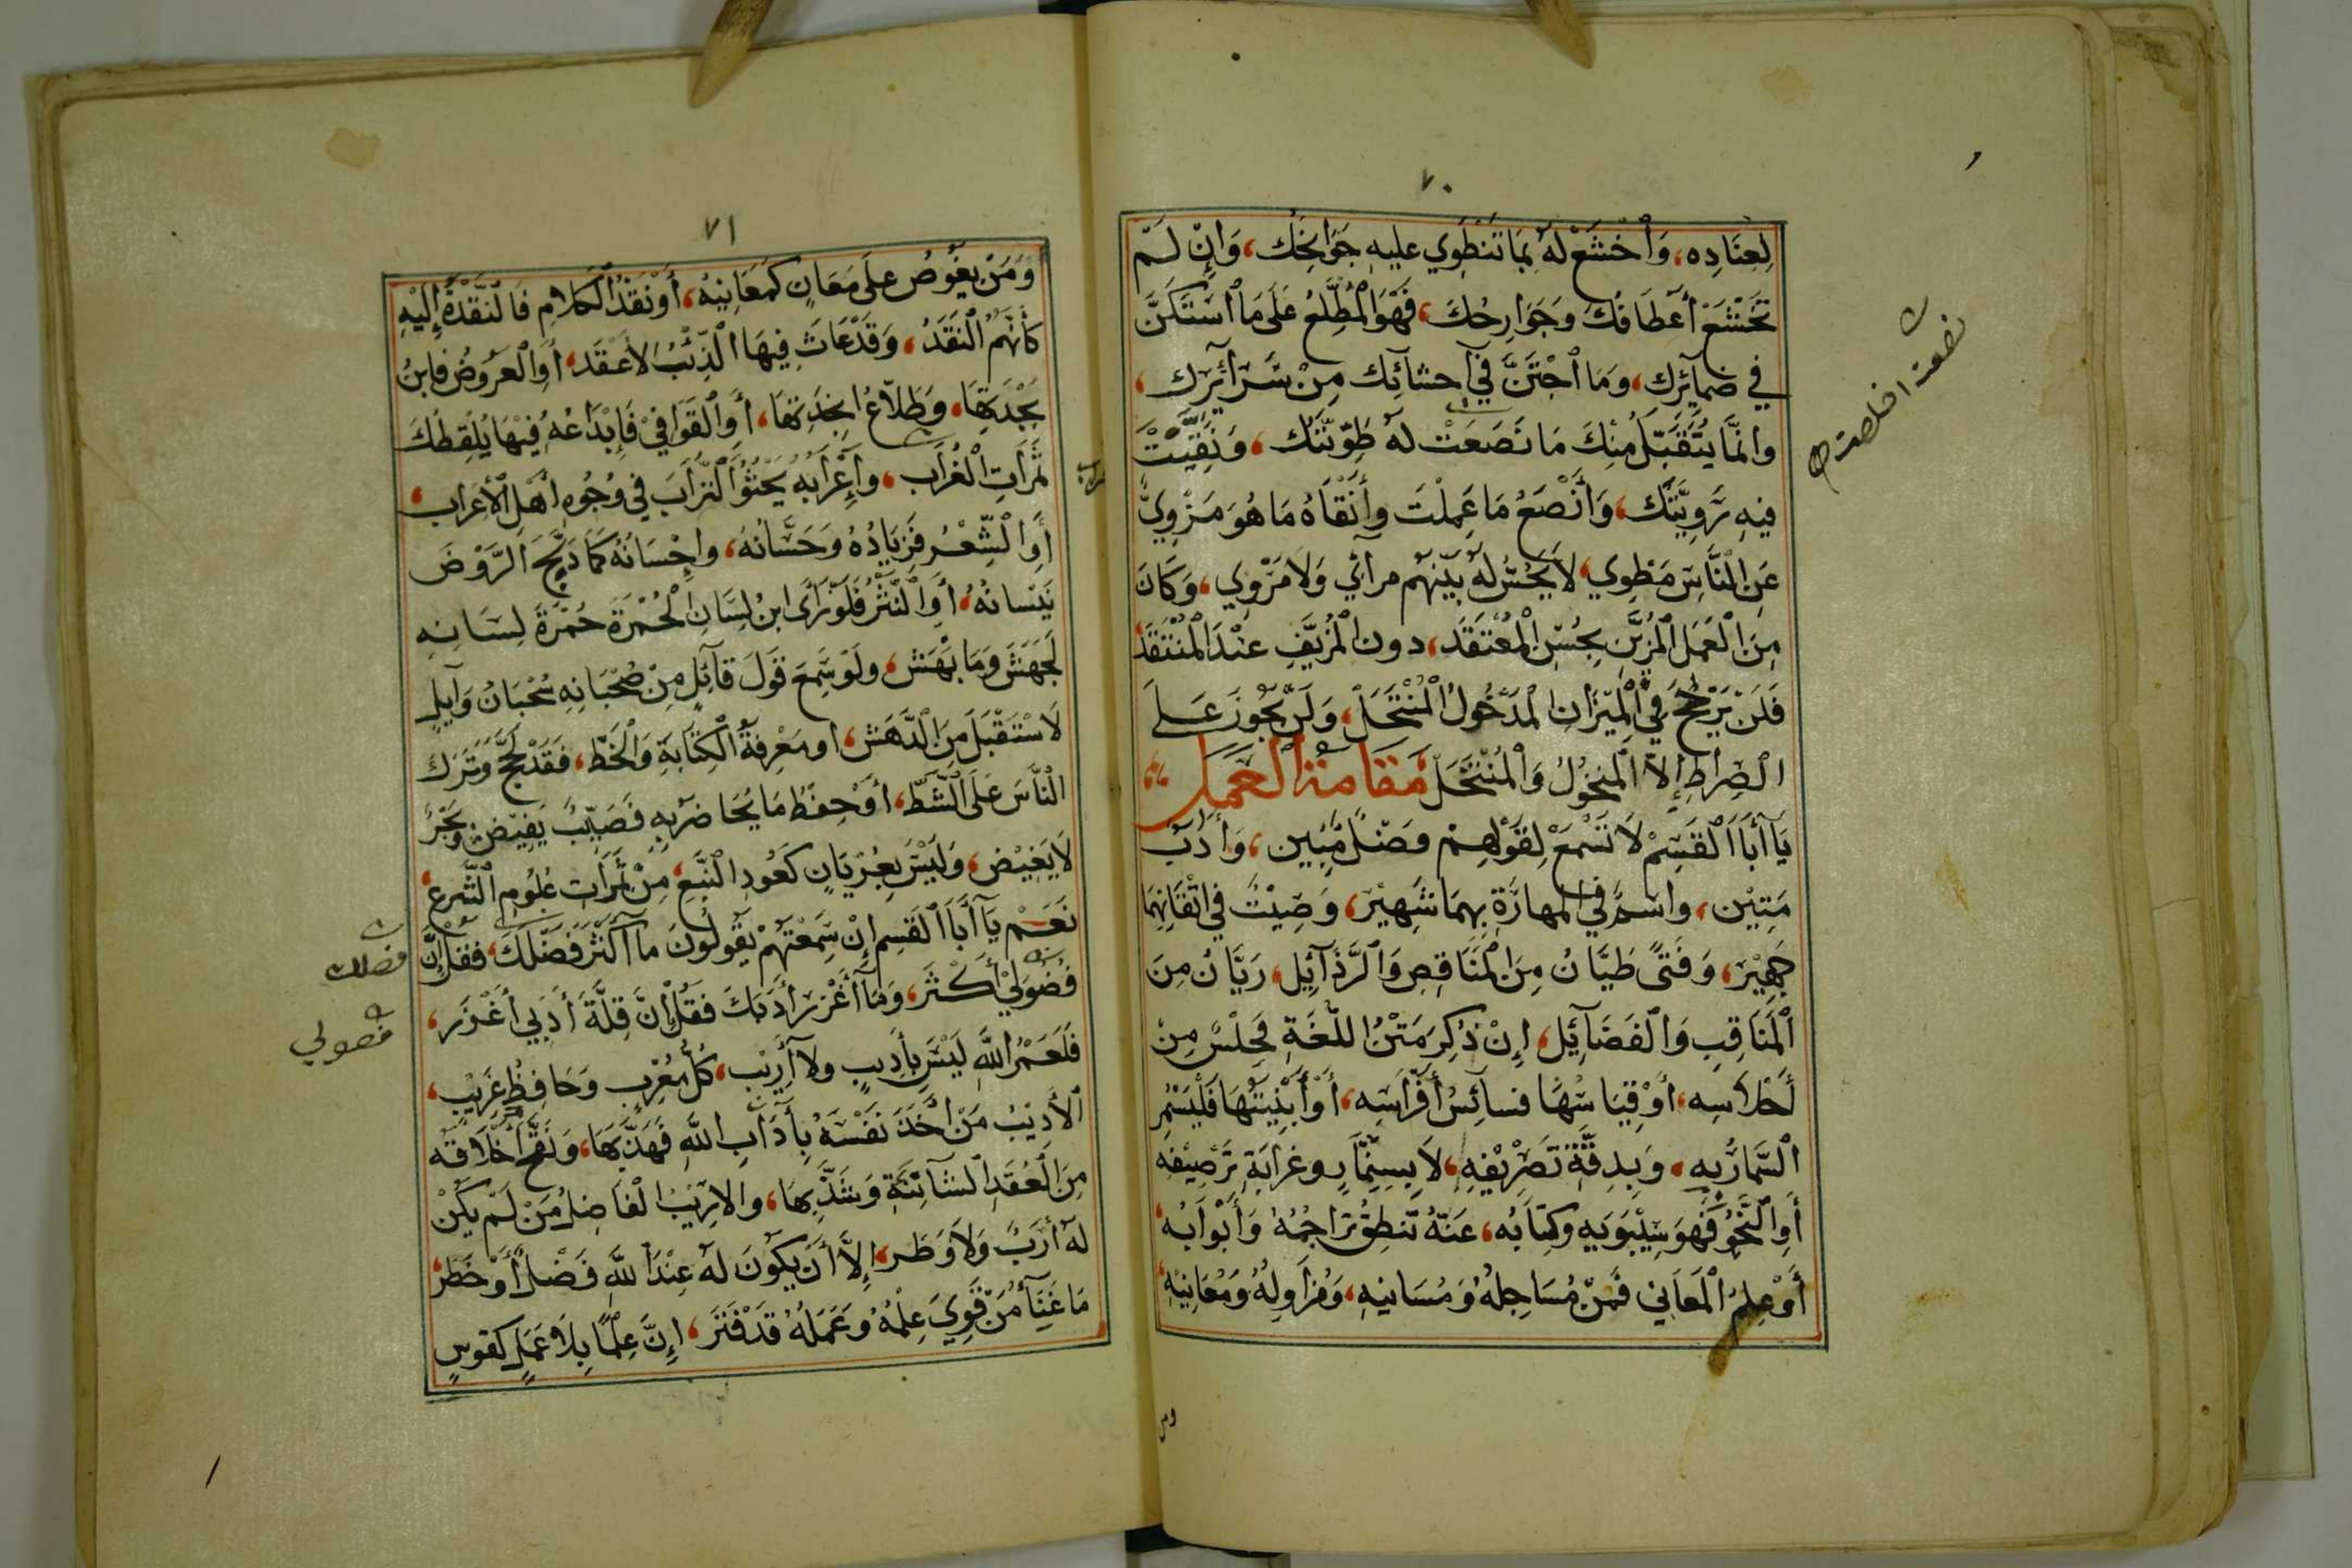 ٧٠
لِعِنَادِه، وَٱخْشَعْ لَهُ بِمَا تَنْطَوِي عليهِ جَوَانِحُك، وَإِنْ لَمْ
تَخْشَعْ أَعْطَافُكَ وَجَوَارِحُكَ، فَهْوَ ٱلْمُطَّلِعُ عَلَى مَا ٱسْتَكَنَّ
في ضمائِرِك، وَمَا ٱجْتَنَّ فِي أحشآئِك مِنْ سَرآئِرِك،
وانَّمَا يُتَقَبَّلُ مِنْكَ مَا نَصَعَتْ لهُ طَوِيَّتُك، وَنَقِيَتْ
فيهِ رَوِيَّتُك، وَأَنْصَعُ مَا عَمِلْتَ وأَنْقَاهُ مَا هُوَ مَزْوِيٌّ
عَنِ ٱلنَّاسِ مَطْوِي، لَا يَحُسُّ لَهُ بَيْنَهُم مرائي وَلَا مَرْوِي، وَكَانَ
مِنَ ٱلْعَمَلِ ٱلْمُزَيَّنِ بِحُسْنِ ٱلْمُعْتَقَد، دون ٱلْمُزَيَّفِ عِنْدَ ٱلْمُنْتَقَد،
فَلَنْ يَرْجَحَ فِي ٱلْمِيزَانِ ٱلْمَدْخُولُ ٱلْمُنْتَحَل، وَلَنْ يَجُوزَ عَلَى
الصِرَاطِ إِلَّا ٱلْمَنْخُولُ وَٱلْمُنْتَخَل مَقَامَةُ ٱلْعَمَل
يَآ أَبَا ٱلْقَسِمْ لَا تَسْمَعْ لِقَوْلِهِمْ فَضْلٌ مُبِين، وَأَدَبٌ
مَتِيْن، واسْمٌ فِي ٱلْمهارَةِ بِهِمَا شَهِيْر، وَصِيْتٌ فِي اتْقَانِهِمَا
جَهِيْر، وَفَتًى طَيَّانُ مِنَ ٱلْمَنَاقِصِ وَٱلرَّذَآئِل، رَيَّانُ مِنَ
ٱلْمَنَاقِبِ وَٱلْفَضَآئِل، إِنْ ذُكِرَ مَتْنُ اللُّغَةِ فَحِلْسٌ مِنْ
أَحْلَاسِه، أَوْ قِيَاسُهَا فسآئِسُ أَفْرَاسِه، أَوْ أَبْنِيَتُهَا فَلْيَسْمُرِ
ٱلسُّمَّارُ بِهِ، وَبِدِقَّةِ تَصْرِيْفِهِ، لَا بِسِنِمَّارٍ وغرابَةِ تَرْصِيْفِهِ
أَوِ ٱلنَّحْوُ فَهوَ سِيْبَوَيهِ وكِتَابُه، عَنْهُ تَنطِقُ تَرَاجِمُهُ وَأَبْوَابُهُ،
أَوْ عِلْمُ ٱلْمَعَانِي فَمَنْ مُسَاجِلُهُ وَمُسَانِيهِ، وَمُزَاوِلُهُ وَمُعَانِيْهِ،
نصعت اخلصت
ومن
٧١
وَمَنْ يَغُوصُ عَلَى مَعَانٍ كَمَعَانِيْهُ، أَوْ نَقْدُ ٱلْكَلَامِ فَٱلنَّقَدَةُ إِلَيْهِ
كَأَنَّهُمُ ٱلنَّقَدُ، وَقَدْ عَاثَ فِيهَا ٱلذِّئْبُ ٱلأَعْقَد، أَوِ ٱلْعَرُوضُ فابنُ
بَجْدَتِهَا، وَطَلَّاعُ انجِدَتِهَا، أَوِ ٱلْقَوَافِيْ فَإِبْدَاعُهُ فِيْهَا يُلْقِطُكَ
ثَمَرَاتِ ٱلْغُرَاب، وَإِغْرَابُهُ يَحْثُوُ ٱلتُّرَابَ فِي وُجُوهِ أَهْلِ ٱلْأَعْرَابِ،
أَوِ ٱلشِّعْرُ فَزِيَادُهُ وَحَسَّانُهُ، وإِحْسَانُهُ كَمَا دَبَّجَ ٱلرَّوْضَ
نَيْسانُهُ، أَوِ ٱلنَّثْرُ فَلَوْ رَاى ابنُ لِسَانِ ٱلْحُمَّرَةِ حُمْرَةَ لِسَانِهِ
لَجَهَشَ وَمَا بَهَش، ولَوْ سَمِعَ قَوْلَ قَآئِلٍ مِنْ صُحْبَانِهِ سَحْبَانُ وَآئِلٍ
لَاسْتَقْبَلَ مِنَ ٱلدَّهَش، او مَعْرِفَةُ ٱلْكِتَابَةِ وَٱلْخَطِّ، فَقَدْ لَجَّجَ وَتَرَكَ
ٱلنَّاسَ عَلَى ٱلشَّطِّ، أَوْ حِفْظُ مَا يُحَاضَرُ بِهِ فَصَيِّبٌ يَفِيْضُ وَبَحْرٌ
لَا يَغِيْض، وَلَيْسَ بِعُرْيَانٍ كَعُودِ ٱلنَّبْعِ، مِنْ ثَمَرَاتِ عُلُومِ ٱلشَّرع،
نَعَمْ يَآ أَبَا ٱلْقَسِمِ إِنْ سَمِعْتَهُمْ يَقُولُونَ ما أَكْثَرَ فَضْلَكَ، فقل إِنَّ
فُضُولِيْ أَكْثَر، وَمَآ أَغْزَرَ أَدَبَكَ فَقُلْ إِنَّ قِلَّةَ أَدَبِي أَغْزَر،
فَلَعَمْرُ اللَّهِ لَيْسَ بِأَدِيبٍ ولا أَرِيْب، كُلُّ مُغْرِبٍ وَحَافِظِ غَرِيْب،
ٱلأَدِيْبُ مَنْ أَخَذَ نَفْسَهُ بِآدَابِ اللَّهِ فَهَذَّبَهَا، وَنَقَّحَ أَخْلَاقَهُ
مِنَ ٱلْعُقَدِ ٱلشَآئِنَةِ وَشَذَّبَهَا، والارِيْبُ ٱلفَاضِلُ مَنْ لَمْ يَكُنْ
لهُ أَرَبٌ وَلَا وَطَر، إِلَّا أَنْ يَكُونَ لَهُ عِنْدَ اللَّهِ فَضْلٌ أَوْ خَطَر،
مَا غَنَآءُ مَنْ قَوِيَ عِلْمُهُ وَعَمَلُهُ قَدْ فَتَر، إِنَّ عِلْمًا بِلَا عَمَلٍ كقوسٍ
فضلك
فضولي